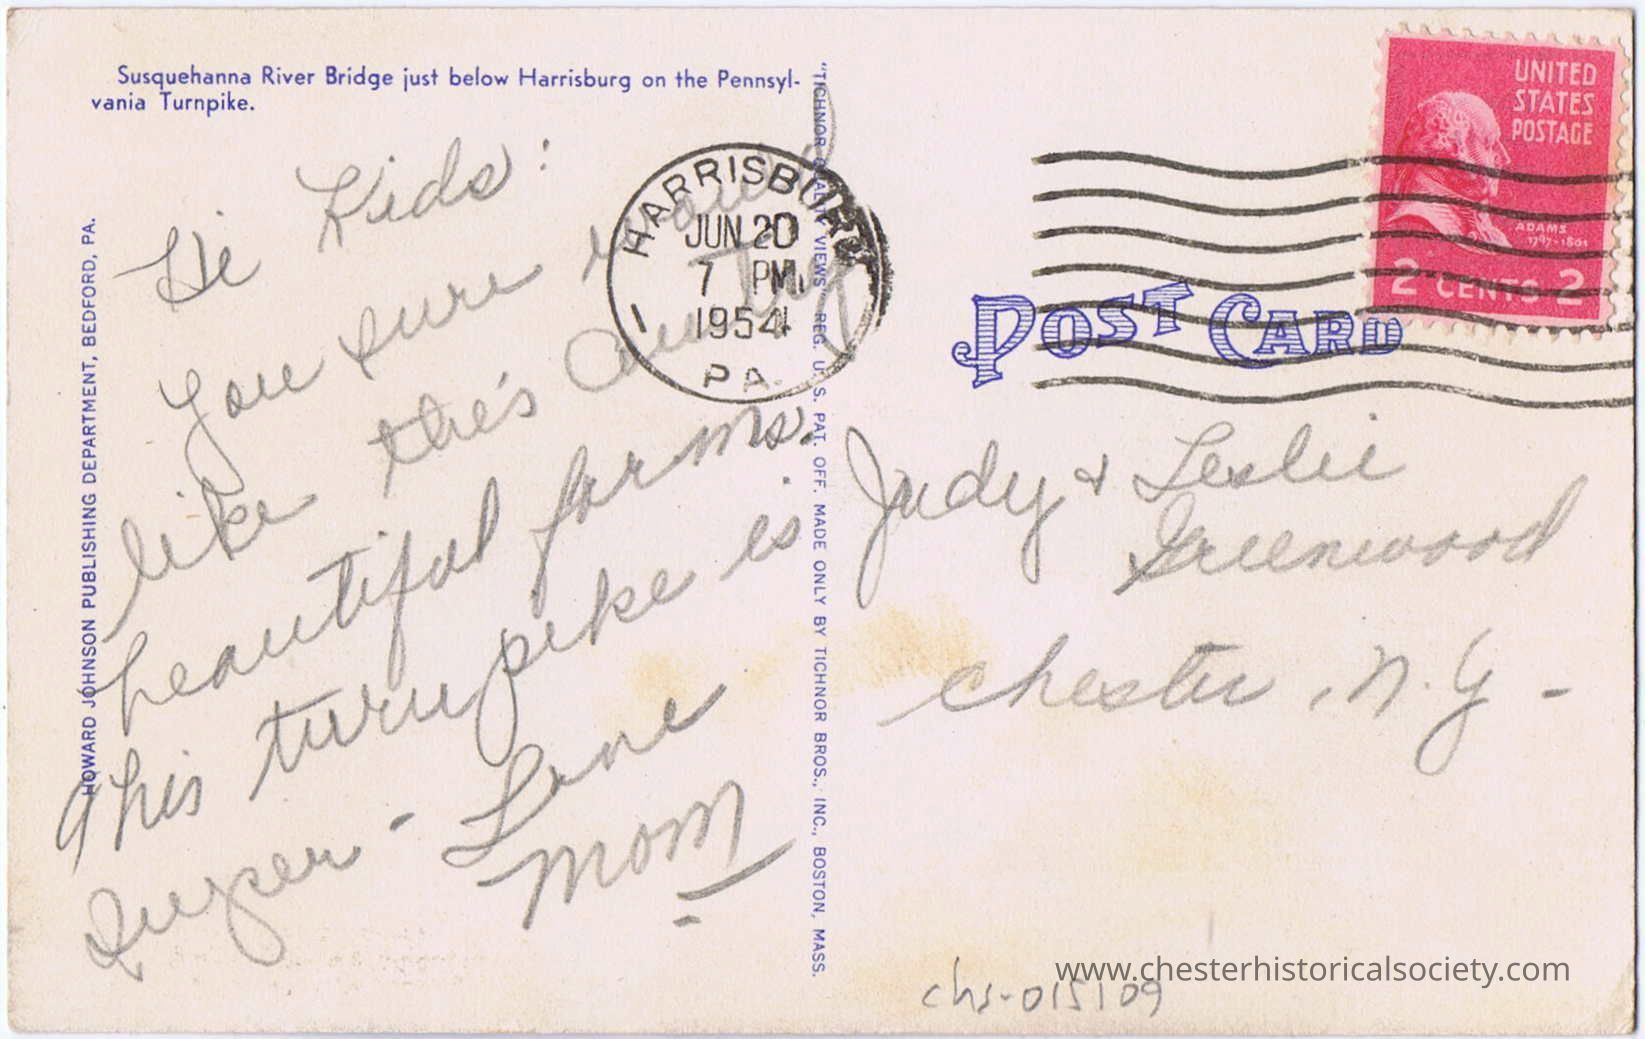 Susquehanna River Bridge just below Harrisburg on the Pennsyl-
vania Turnpike.
HOWARD JOHNSON PUBLISHING DEPARTMENT, BEDFORD, PA.
Hi Kids:
You sure would
like this country
beautiful farms.
This turnpike is
Super - Love
Mom
HARRISBURG
JUN 20
7 PM
1954
1
PA.
"TICHNOR QUALITY VIEWS" REG. U. S. PAT. OFF. MADE ONLY BY TICHNOR BROS., INC., BOSTON, MASS.
UNITED
STATES
POSTAGE
ADAMS
1797-1801
2 CENTS 2
POST CARD
Judy & Leslie
Greenwood
Chester, N.Y -
www.chesterhistoricalsociety.com
chs-015109